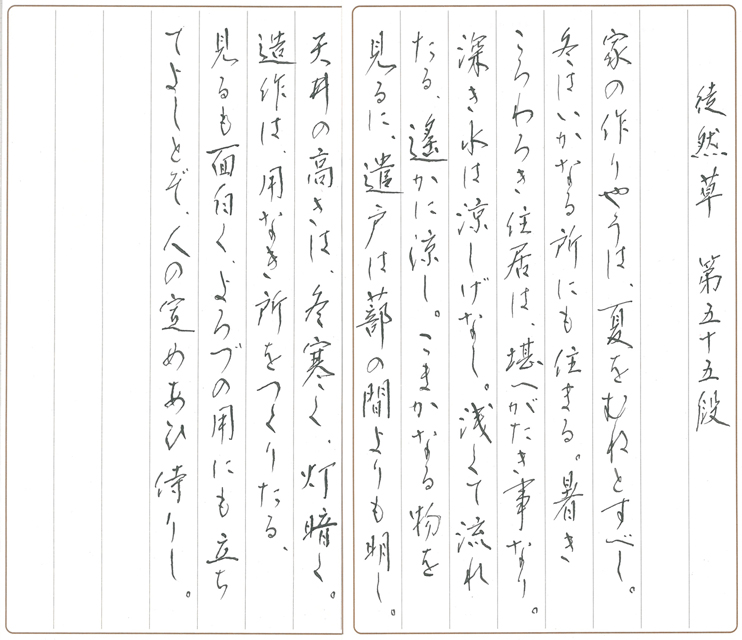 徒然草　第五十五段
家の作りやうは、夏をむねとすべし。
冬はいかなる所にも住まる。暑き
ころわろき住居は、堪へがたき事なり。
深き水は涼しげなし。浅くて流れ
たる、遙かに涼し。こまかなる物を
見るに、遣戸は蔀の間よりも明し。
天井の高きは、冬寒く、灯暗く。
造作は、用なき所をつくりたる、
見るも面白く、よろづの用にも立ち
てよしとぞ、人の定めあひ侍りし。